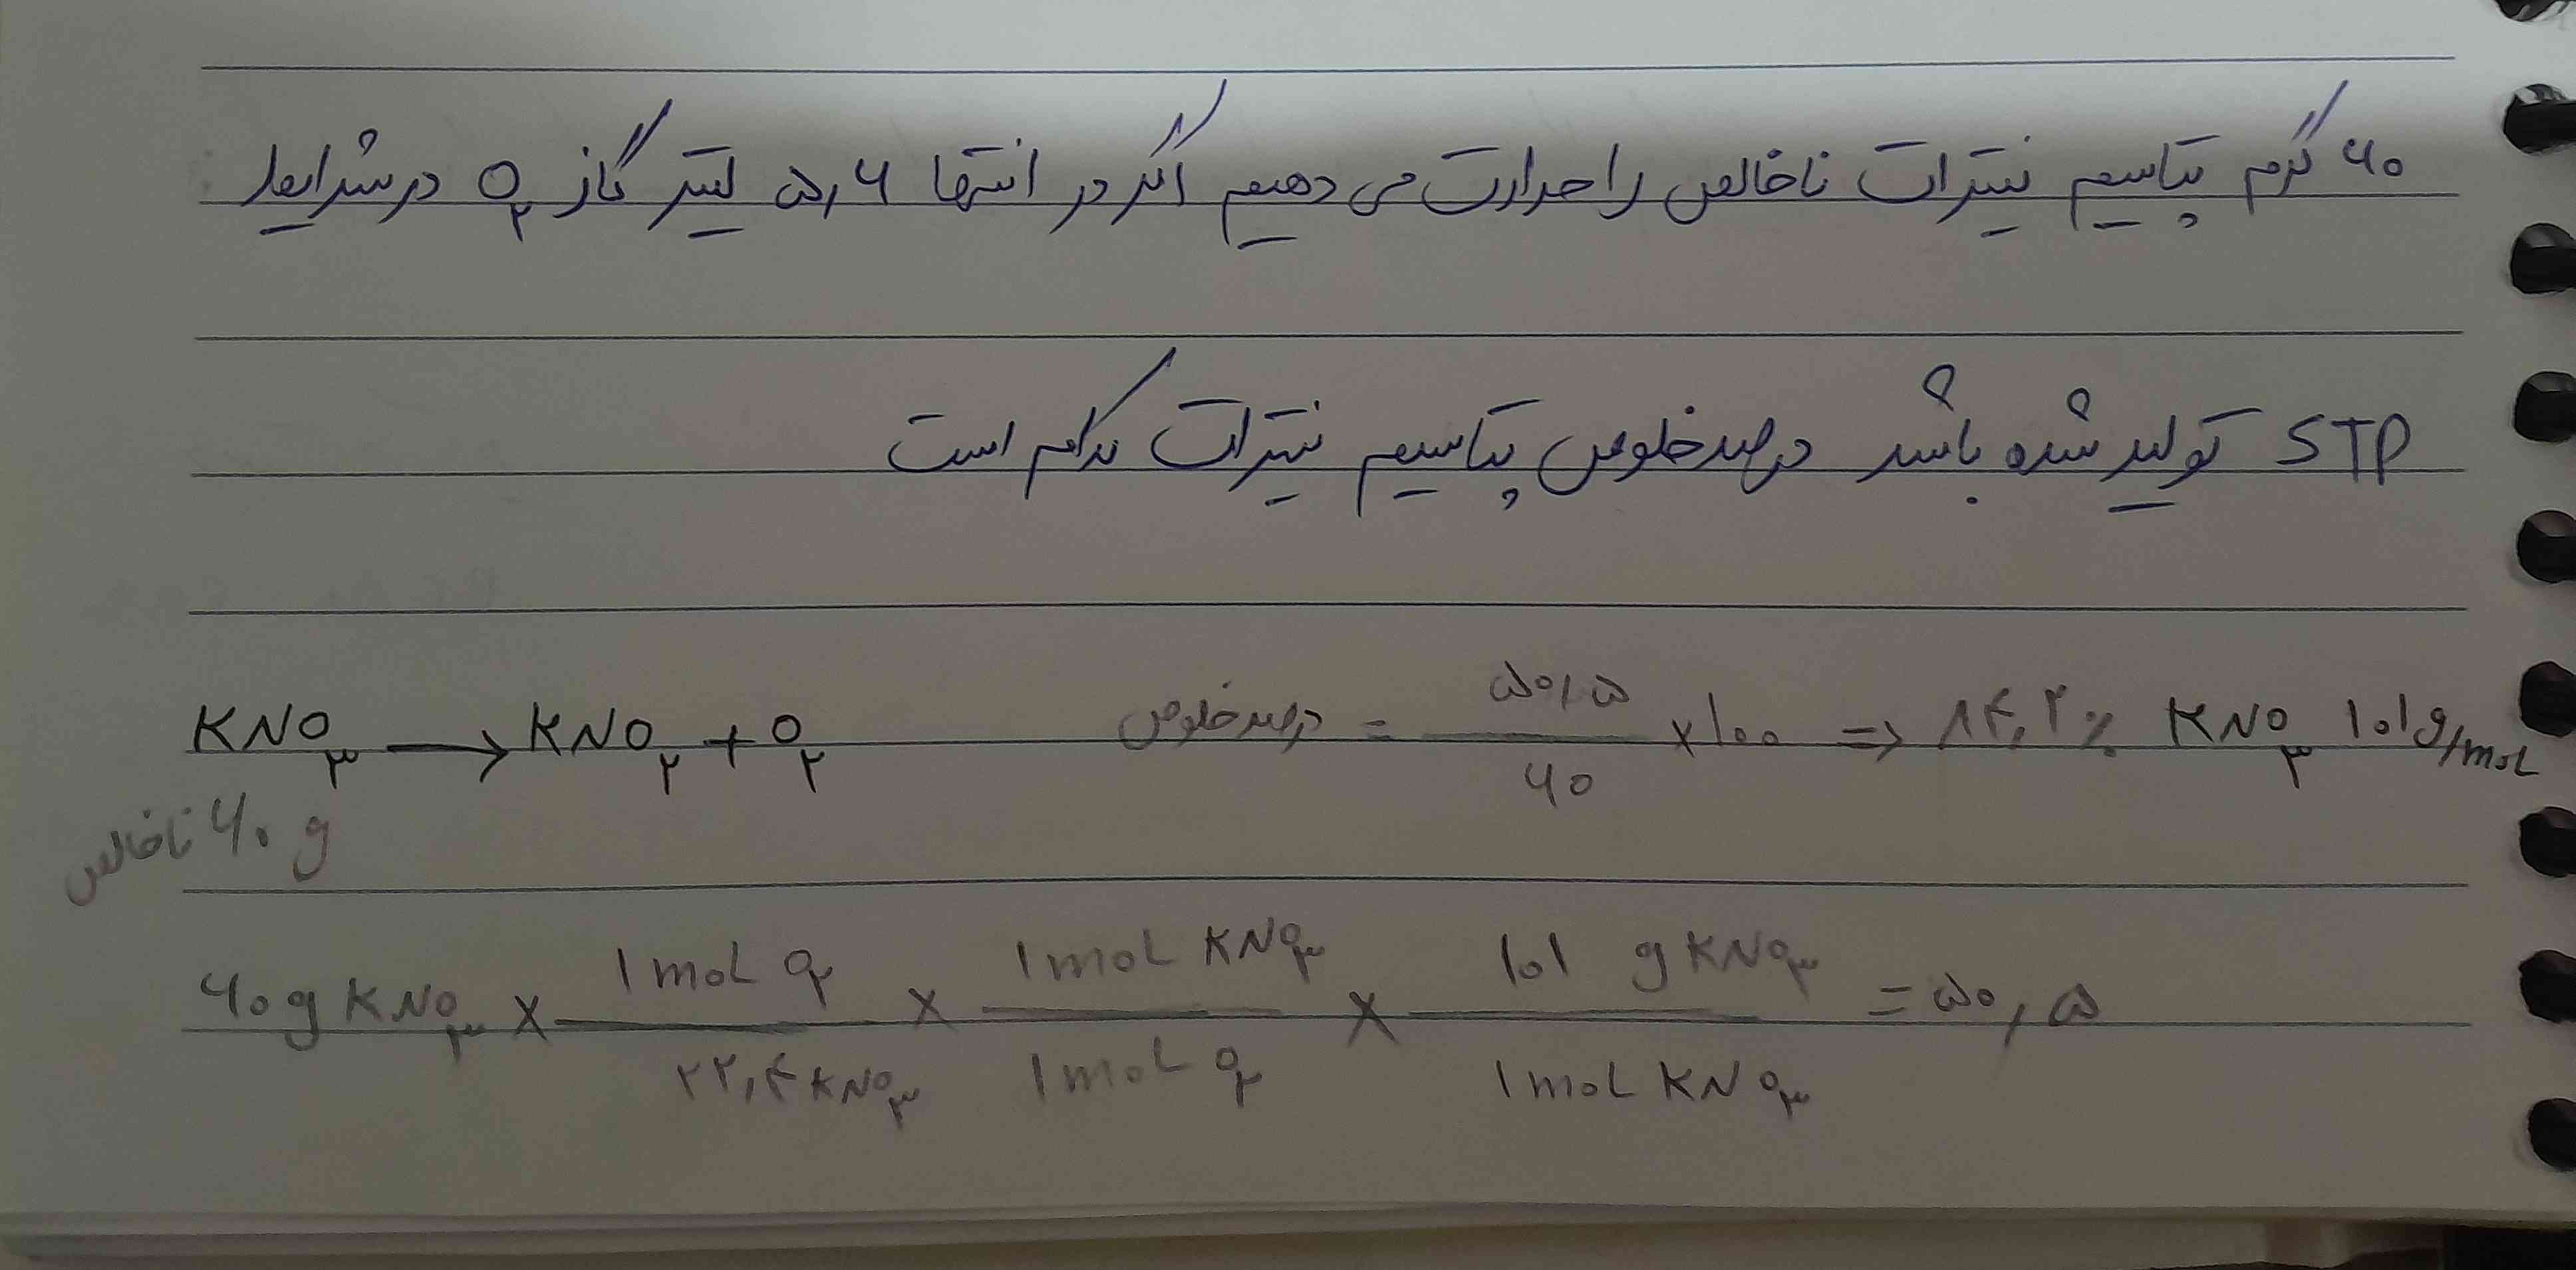 ۶۰ گرم پتاسیم نیترات ناخالص را حرارت می دهیم اگر در انتها ۵,۶ لیتر گاز O۲ در شرایط
STP تولید شده باشد درصد خلوص پتاسیم نیترات کدام است
KNO۳ → KNO۲ + O۲ درصد خلوص = ۵۰,۵ / ۶۰ × ۱۰۰ => ۸۴,۲٪ KNO۳ ۱۰۱ g/moL
۶۰ g ناخالص
۶۰ g KNO۳ × ۱ moL O۲ / ۲۲,۴ KNO۳ × ۱ moL KNO۳ / ۱ moL O۲ × ۱۰۱ g KNO۳ / ۱ moL KNO۳ = ۵۰,۵